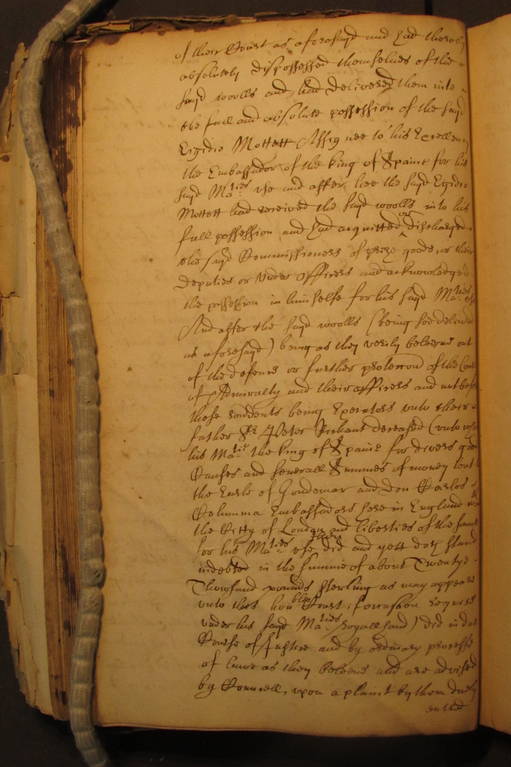 of their Court as aforesayd and had thereby
absolutely dispossessed themselues of the
sayd woolls and had deliuered them into
the full and absolute possession of the sayd
Egidio Mottett Assignee to his Excellency
the Embassador of the King of Spaine for his
sayd Maties vse and after hee the sayd Egidio
Mottett had receiued the sayd woolls into his
full possession and had acquitted or discharged
the sayd Commissioners of prize goods or their
deputies or vnder Officers and acknowledged
the possession in himselfe for his sayd Maties vse
And after the sayd woolls (being soe deliuered
as aforesayd) being as they verily beleeue out
of the defence or further protection of the Court
of Admiralty and their officers and not before
these rondents being Executors vnto their
father Sr Peter Richaut deceased (vnto whom
his Matie the King of Spaine for divers good
Causes and seuerall Summes of money lent
the Earle of Gondomar and Don Carlos
Columma Embassadors here in England in
the Citty of London and liberties of the same
for his Maties vse did and yett doth stand
indebted in the summe of about Twenty
Thousand pounds sterling as may appeare
vnto this hoble Court, foreasmuch
vnder his sayd Maties Royall hand) did in due
Course of Justice and by ordinary processe
of lawe as they beleeue and are advised
by Councell, vpon a plaint by them duely
entred